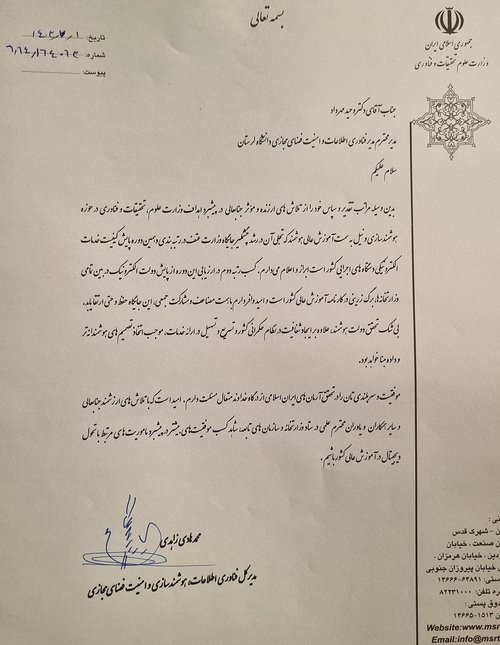 بسمه تعالی
جمهوری اسلامی ایران
وزارت علوم تحقیقات و فناوری
تاریخ:
شماره:
پیوست:
جناب آقای دکتر وحید مهرداد
مدیر محترم مدیر فناوری اطلاعات و امنیت فضای مجازی دانشگاه لرستان
سلام علیکم
بدین وسیله مراتب تقدیر و سپاس خود را از تلاش های ارزنده و مؤثر جنابعالی در پیشبرد اهداف وزارت علوم، تحقیقات و فناوری در حوزه
هوشمندسازی و نیل به سمت آموزش عالی هوشمند که تجلی آن در رشد چشمگیر جایگاه وزارت عتف در رتبه بندی دهمین دوره پایش کیفیت خدمات
الکترونیکی دستگاه های اجرایی کشور است ابراز و اعلام می دارم. کسب رتبه دوم در ارزیابی این دوره از پایش دولت الکترونیک در بین تمامی
وزارتخانه ها، برگ زرینی در کارنامه آموزش عالی کشور است و امید وافر دارم با همت مضاعف و مشارکت جمعی، این جایگاه حفظ و حتی ارتقا یابد.
بی شک تحقق دولت هوشمند، علاوه بر ایجاد شفافیت در نظام حکمرانی کشور و تسریع و تسهیل در ارائه خدمات، موجب اتخاذ تصمیم های هوشمندانه تر
و داده مبنا خواهد بود.
موفقیت و سربلندی تان را در تحقق آرمان های ایران اسلامی از درگاه خداوند متعال مسئلت دارم. امید است که با تلاش های ارزشمند جنابعالی
و سایر همکاران و یاوران محترم علمی در ستاد وزارتخانه و سازمان های تابعه، شاهد کسب موفقیت های بیشتر در پیشبرد ماموریت های مرتبط با تحول
دیجیتال در آموزش عالی کشور باشیم.
محمد هادی زاهدی
مدیر کل فناوری اطلاعات، هوشمندسازی و امنیت فضای مجازی
شهرک قدس
صنعت، خیابان
خیابان هرمزان،
خیابان پیروزان جنوبی
۱۴۶۶۶-۶۴۸۹۱
تلفن: ۸۲۲۳۱۰۰۰
پستی:
۱۴۶۶۵-۱۵۱۳
Website:www.msrt
Email:info@msrt